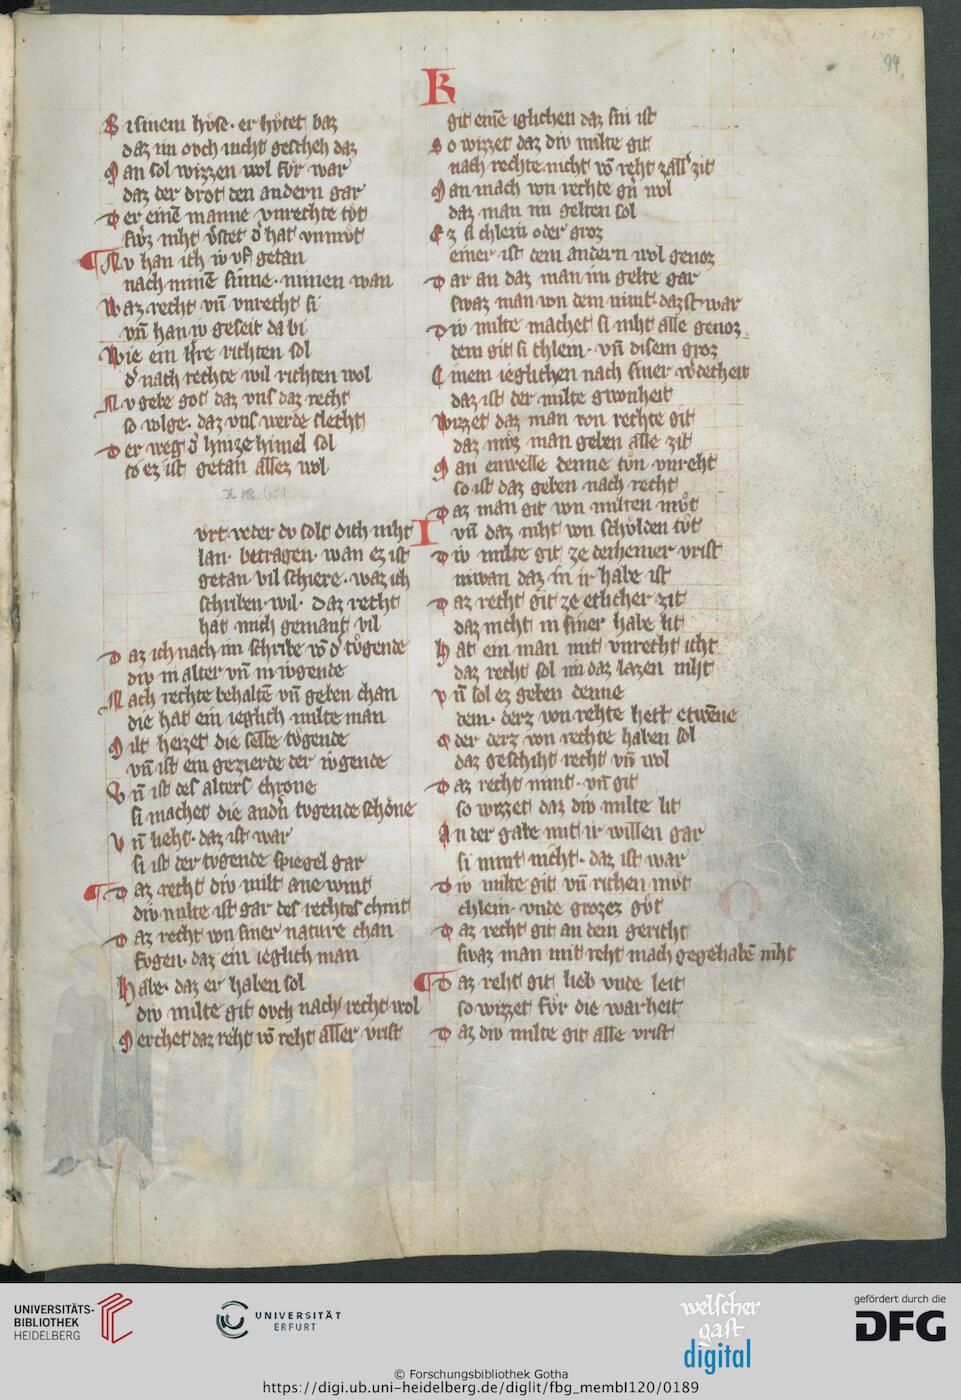 K
94
Bi sinem hv̊se · er hv̊tet baz
daz im ovch nicht gescheh daz
Man sol wizzen wol fv̊r war
daz der drot den andern gar
Der einē manne vnrechte tv̊t
niht hat vnmv̊t
Nv han ich iv getan
nach minē sinne · minen wan
Waz recht vn̄ vnrecht si
vn̄ han iv geseit da bi
Wie ein richten sol
nach rechte wil richten wol
Nv gebe got daz vns daz recht
so volge · daz vns werde slecht
Der weg hinize himel sol
so ez ist getan allez wol
vrt veder dv solt dich niht
lan · betragen · wan ez ist
getan vil schiere · waz ich
schriben wil · daz recht
hat mich gemant vil
Daz ich nach im schribe tv̊gende
div in alter vn̄ in ivgende
Nach rechte behaltē vn̄ geben chan
die hat ein ieglich milte man
Milt heizet die selbe tvgende
vn̄ ist ein gezierde der ivgende
Vn̄ ist des alters chrone
si machet die tvgende schöne
Vn̄ lieht · daz ist war
si ist der tvgende spiegel gar
Daz recht div milt ane wint
div milte ist gar des rechtes chint
Daz recht von siner nature chan
fvgen · daz ein ieglich man
Habe · daz er haben sol
div milte git ovch nach recht wol
Merchet daz reht vō reht aller vrist
git einē iglichen daz sin ist
So wizzet daz div milte git
nach rechte nicht vō reht zit
Man mach von rechte wol
daz man im gelten sol
Ez si chlein oder groz
einer ist dem andern wol genoz
Dar an daz man im gelte gar
swaz man von dem nimt daz st war
Div milte machet si niht alle genoz
dem git si chlein · vn̄ disem groz
Einem ieglichen nach siner
daz ist der milte gwonheit
Wizzet daz man von rechte git
daz mv̊z man geben alle zit
Man enwelle denne tv̊n vnreht
so ist daz geben nach recht
Daz man git von milten mv̊t
vn̄ daz niht von schvlden tv̊t
Div milte git ze deheiner vrist
niwan daz in ir habe ist
Daz recht git ze etlicher zit
daz nicht in siner habe lit
Hat ein man mit vnrecht icht
daz recht sol im daz lazen niht
Vn̄ sol ez geben denne
dem · derz von rehte hett etwenne
Oder derz von rechte haben sol
daz geschiht recht vn̄ wol
Daz recht nimt · vn̄ git
so wizzet daz div milte lit
An der gabe mit ir willen gar
si nimt nicht · daz ist war
Div milte git vn̄ richen mv̊t
chlein · vnde grozez gv̊t
Daz recht git an dem gericht
swaz man mit reht mach gegehabē niht
Daz reht git lieb vnde leit
so wizzet fv̊r die warheit
Daz div milte git alle vrist
I
UNIVERSITÄTS-
BIBLIOTHEK
HEIDELBERG
UNIVERSITÄT
ERFURT
welscher
gast
digital
gefördert durch die
DFG
© Forschungsbibliothek Gotha
https://digi.ub.uni-heidelberg.de/diglit/fbg_membI120/0189